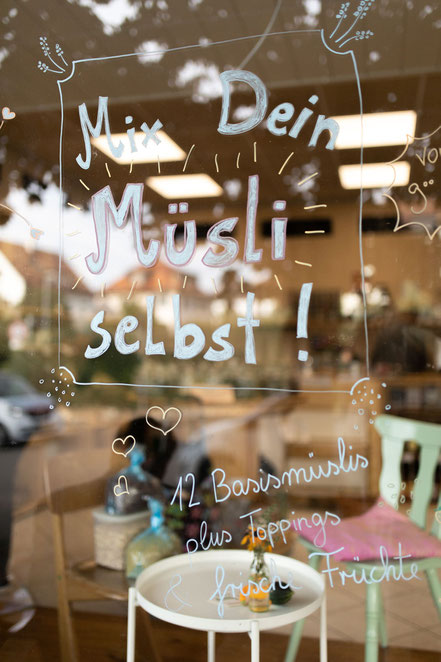 Mix Dein
Müsli
selbst!
12 Basismüslis
plus Toppings
& frische Früchte